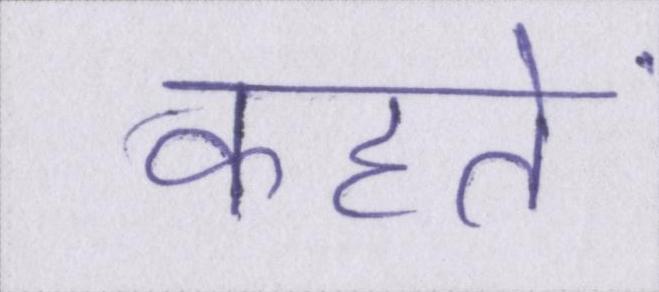 कहतें